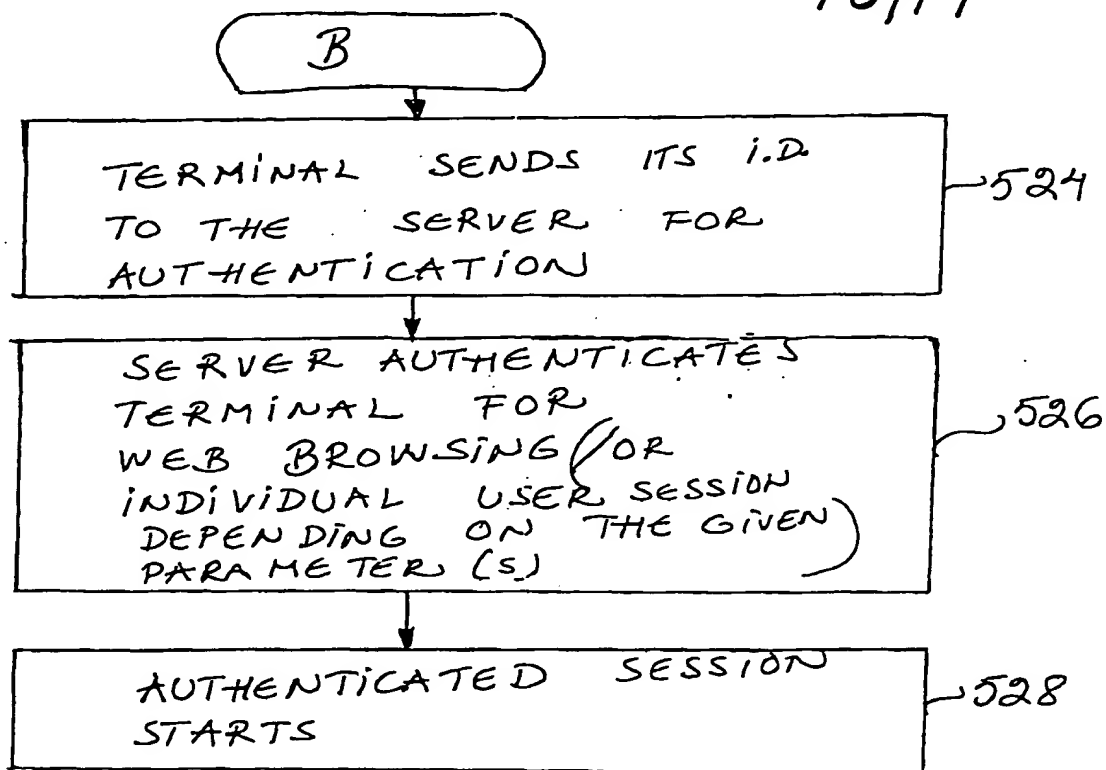 B
TERMINAL SENDS ITS i.D.
TO THE SERVER FOR
AUTHENTICATION
524
SERVER AUTHENTICATES
TERMINAL FOR
WEB BROWSING (OR
INDIVIDUAL USER SESSION
DEPENDING ON THE GIVEN)
PARAMETER (S)
526
AUTHENTICATED SESSION
STARTS
528